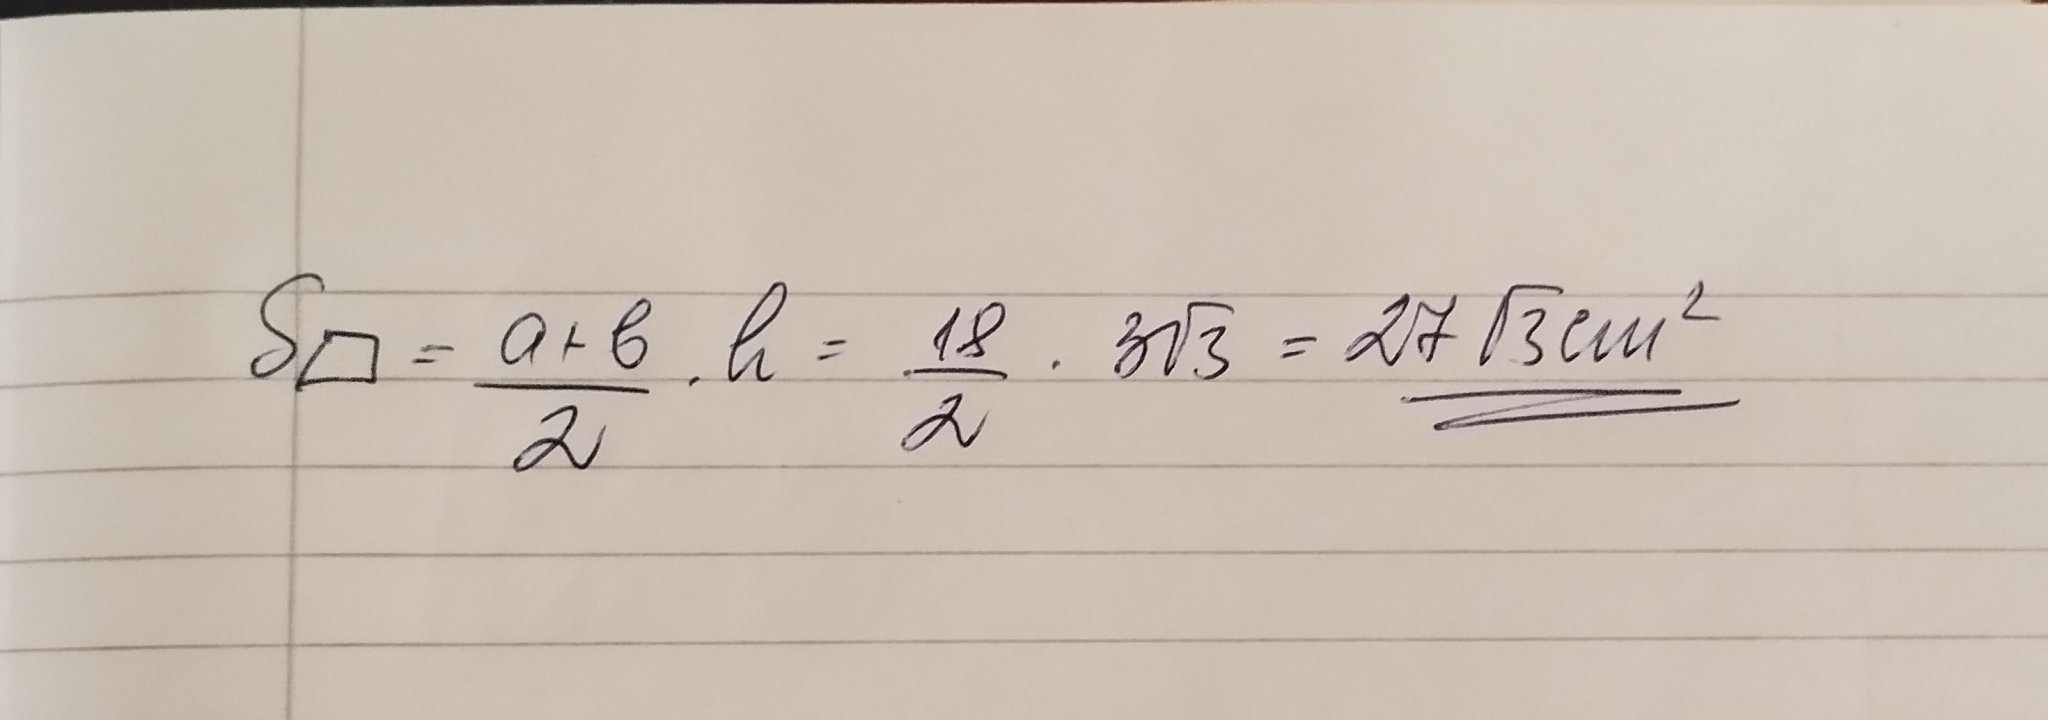 S▱ = a+b/2 . h = 18/2 . 3√3 = 27√3 cm²